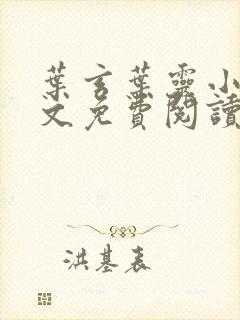 葉言葉靈小
文免費閱讀
洪基表